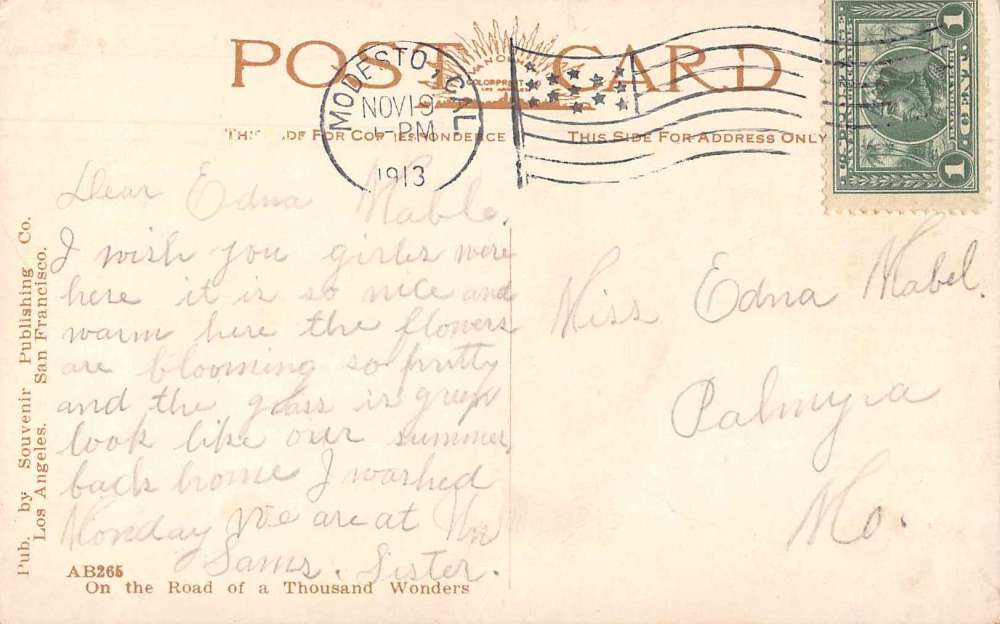 POST CARD
MODESTO, CAL.
NOV 19
PM
1913
FOR CORRESPONDENCE
THIS SIDE FOR ADDRESS ONLY
1
1
Dear Edna Mable.
I wish you girles were
here it is so nice and
warm here the flowers
are blooming so pretty
and the glass is green
look like our summer,
back home I washed
Monday We are at
Sams. Sister.
Miss Edna Mabel.
Palmyra
Mo.
Pub. by Souvenir Publishing Co.
Los Angeles. San Francisco.
AB265
On the Road of a Thousand Wonders